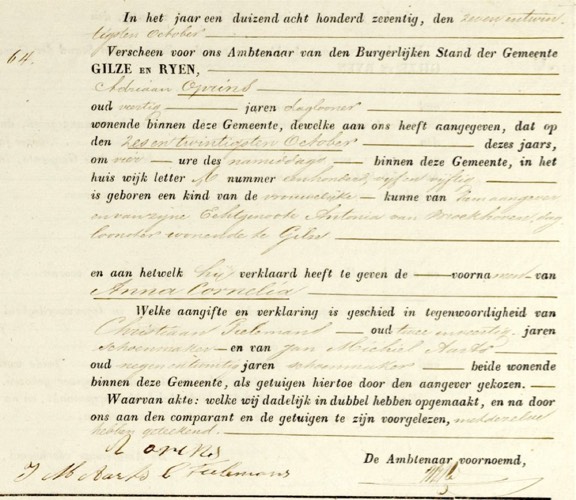 In het jaar een duizend acht honderd zeventig, den zeven entwin
tigsten October
64.
Verscheen voor ons Ambtenaar van den Burgerlijken Stand der Gemeente
GILZE EN RYEN,
Adriaan Oprins
oud veertig jaren daglooner
wonende binnen deze Gemeente, dewelke aan ons heeft aangegeven, dat op
den zes en twintigsten October dezes jaars,
om vier ure des namiddags binnen deze Gemeente, in het
huis wijk letter A nummer vijf en vijftig
is geboren een kind van de vrouwelijke kunne van hem aangever
en van zijne Echtgenoote Antonia van Broekhoven, dag
loonster wonende te Gilze
en aan hetwelk hij verklaard heeft te geven de voorna men van
Anna Cornelia
Welke aangifte en verklaring is geschied in tegenwoordigheid van
Christiaan Tielemans oud twee en veertig jaren
schoenmaker en van Jan Michiel Aarts
oud jaren schoenmaker beide wonende
binnen deze Gemeente, als getuigen hiertoe door den aangever gekozen.
Waarvan akte: welke wij dadelijk in dubbel hebben opgemaakt, en na door
ons aan den comparant en de getuigen te zijn voorgelezen, met dezelve
hebben geteekend.
A oprins
J M Aarts C Tielemans
De Ambtenaar voornoemd,